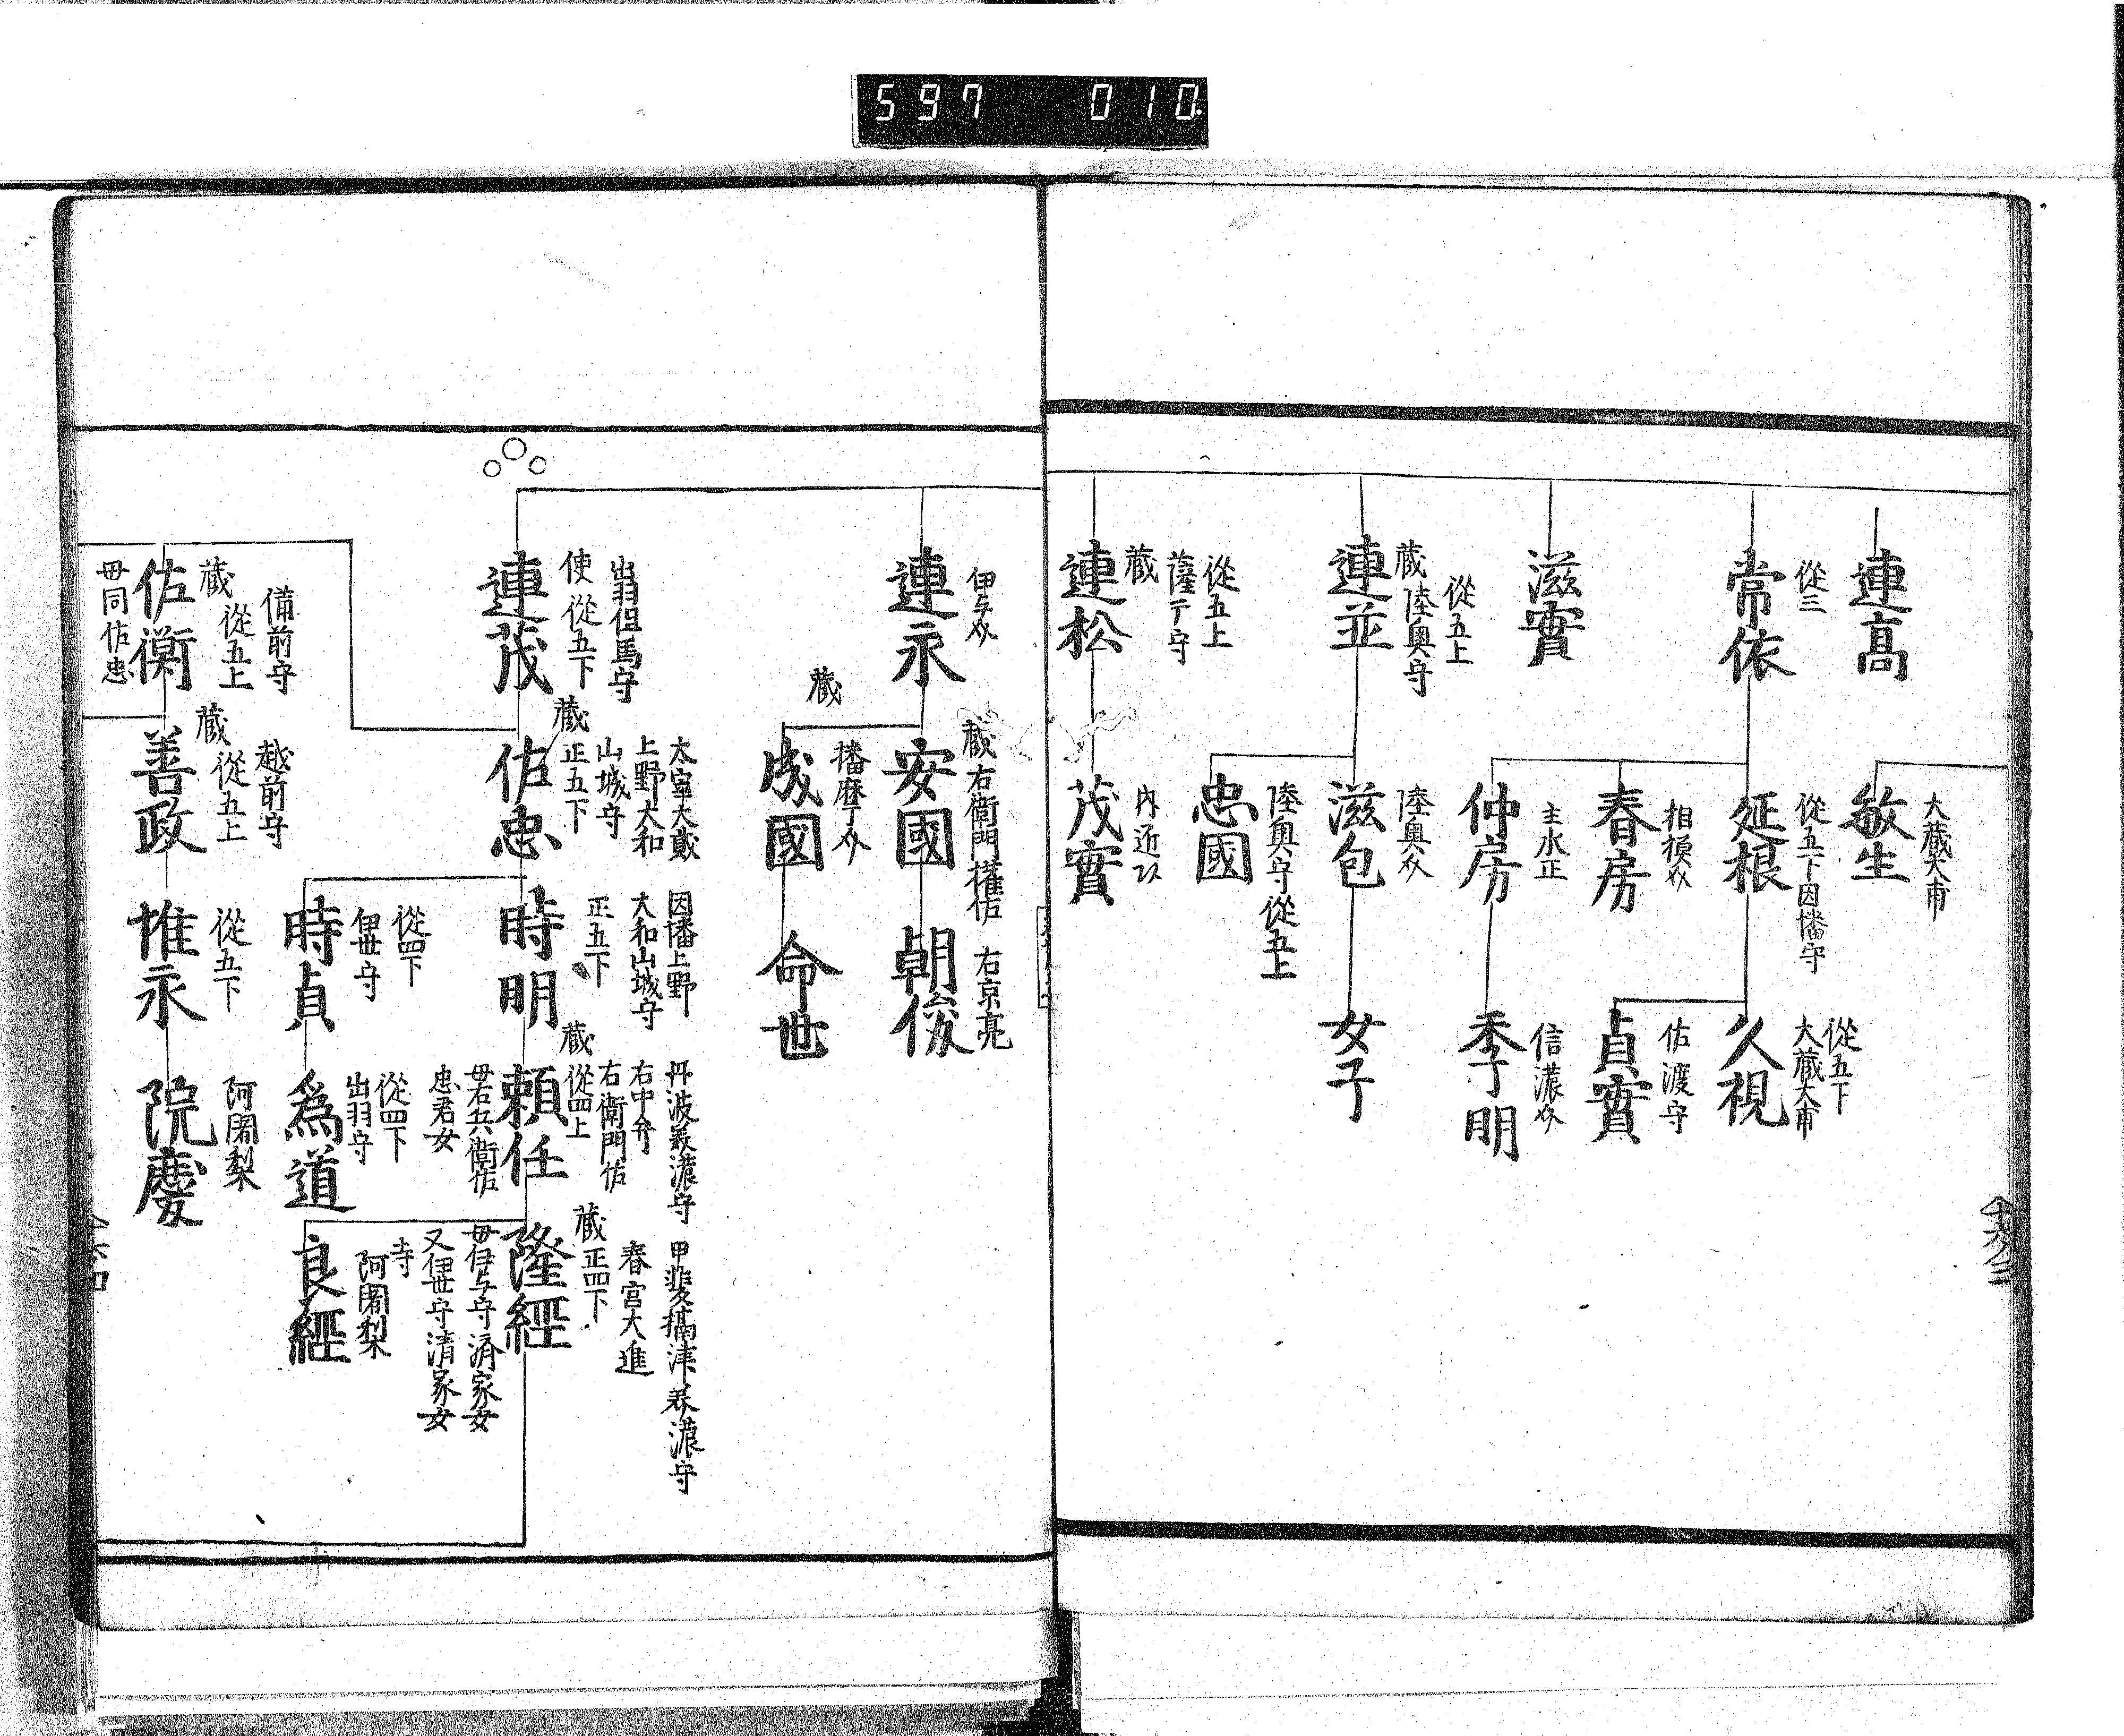 597 010
連高
従三
常依
滋實
従五上
蔵 陸奥守
連並
従五上
薩广守
蔵
連松
大蔵大甫
敏生
従五下因幡守
延根
相模
春房
主水正
仲房
陸奥
滋包
陸奥守従五上
忠國
内近
茂實
従五下
大蔵大甫
久視
佐渡守
貞實
信濃
季明
女子
伊与
連永
出羽但馬守
使 従五下
連茂
備前守
蔵 従五上
佐衡
母同佐忠
蔵 右衛門権佐
安國
播磨
蔵
成國
太宰大貮
上野大和
山城守
蔵 正五下
佐忠
越前守
蔵 従五上
善政
右京亮
朝俊
命世
因幡上野
大和山城守
正五下
時明
従四下
伊世守
時貞
従五下
惟永
丹波美濃守
右中弁
右衛門佐
蔵 従四上
頼任
母右兵衛佐
忠君女
従四下
出羽守
為道
阿闍梨
院慶
甲斐摂津美濃守
春宮大進
蔵 正四下
隆經
母伊与守済家女
又伊世守清家女
寺
阿闍梨
良經